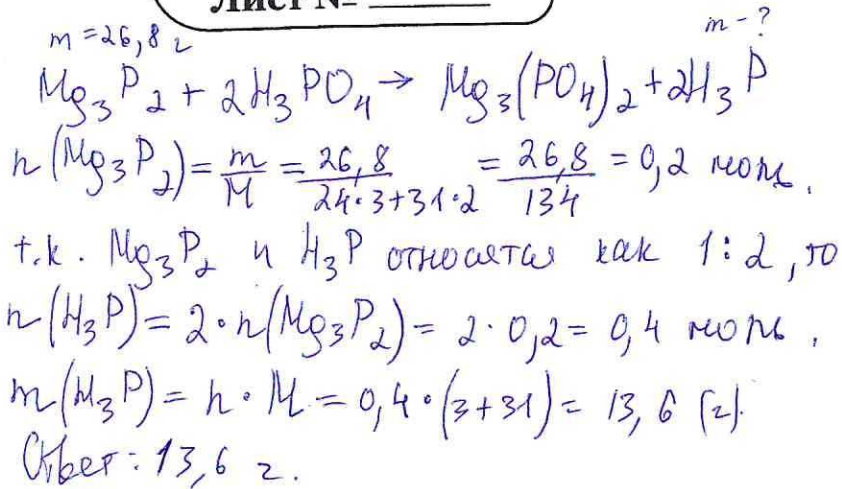 Лист № ________
m = 26,8 г m - ?
Mg₃P₂ + 2H₃PO₄ → Mg₃(PO₄)₂ + 2H₃P
n(Mg₃P₂) = m/M = 26,8/(24·3+31·2) = 26,8/134 = 0,2 моль.
т.к. Mg₃P₂ и H₃P относятся как 1:2, то
n(H₃P) = 2·n(Mg₃P₂) = 2·0,2 = 0,4 моль.
m(H₃P) = n·M = 0,4·(3+31) = 13,6 (г).
Ответ: 13,6 г.